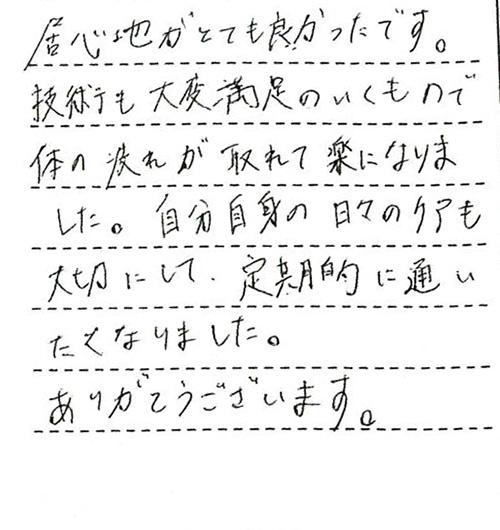 居心地がとても良かったです。
技術も大変満足のいくもので
体の疲れが取れて楽になりま
した。自分自身の日々のケアも
大切にして、定期的に通い
たくなりました。
ありがとうございます。